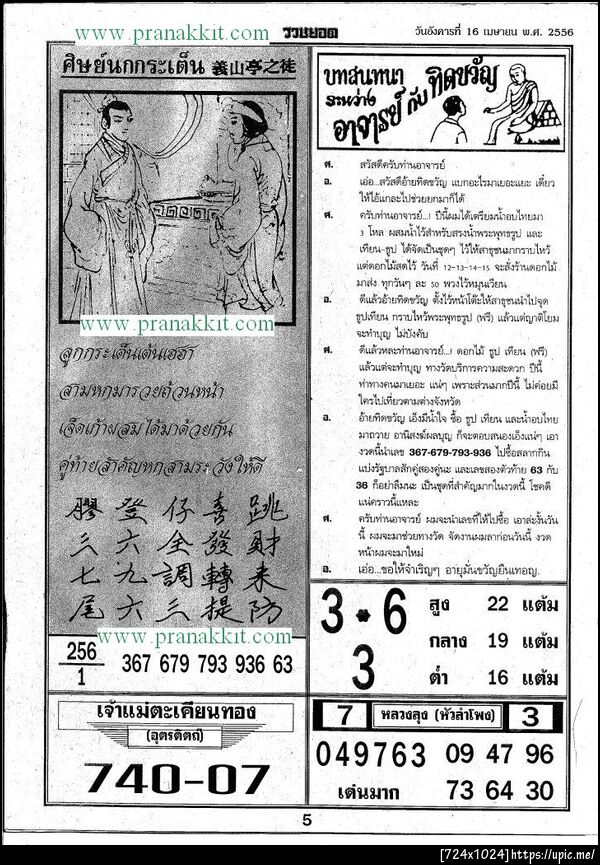 www.pranakkit.com
รวมยอด
วันอังคารที่ 16 เมษายน พ.ศ. 2556
ศิษย์นกกระเต็น 義山亭之徒
www.pranakkit.com
ลูกกระเต็นเต้นเฮฮา
สามหกมารวยถ้วนหน้า
เจ็ดเก้าผสมได้มาด้วยกัน
คู่ท้ายสำคัญหกสามระวังให้ดี
膠 登 仔 喜 跳
三 六 全 發 財
七 九 調 轉 来
尾 六 三 提 防
www.pranakkit.com
256
1
367 679 793 936 63
เจ้าแม่ตะเคียนทอง
(อุตรดิตถ์)
740-07
บทสนทนา
ระหว่าง
อาจารย์ กับ ทิดขวัญ
ศ. สวัสดีครับท่านอาจารย์
อ. เอ่อ...สวัสดีอ้ายทิดขวัญ แบกอะไรมาเยอะแยะ เดี๋ยว
ให้ไอ้แกละไปช่วยยกมาก็ได้
ศ. ครับท่านอาจารย์...! ปีนี้ผมได้เตรียมน้ำอบไทยมา
3 โหล ผสมน้ำไว้สำหรับสรงน้ำพระพุทธรูป และ
เทียน-ธูป ได้จัดเป็นชุดๆ ไว้ให้สาธุชนมากราบไหว้
แต่ดอกไม้สดไว้ วันที่ 12-13-14-15 จะสั่งร้านดอกไม้
มาส่ง ทุกวันๆ ละ 50 พวงไว้หมุนเวียน
อ. ดีแล้วอ้ายทิดขวัญ ตั้งไว้หน้าโต๊ะให้สาธุชนนำไปจุด
ธูปเทียน กราบไหว้พระพุทธรูป (ฟรี) แล้วแต่ญาติโยม
จะทำบุญ ไม่บังคับ
ศ. ดีแล้วหละท่านอาจารย์...! ดอกไม้ ธูป เทียน (ฟรี)
แล้วแต่จะทำบุญ ทางวัดบริการความสะดวก ปีนี้
ท่าทางคนมาเยอะ แน่ๆ เพราะส่วนมากปีนี้ ไม่ค่อยมี
ใครไปเที่ยวตามต่างจังหวัด
อ. อ้ายทิดขวัญ เอ็งมีน้ำใจ ซื้อ ธูป เทียน และน้ำอบไทย
มาถวาย อานิสงฆ์ผลบุญ ก็จะตอบสนองเอ็งแน่ๆ เอา
งวดนี้นำเลข 367-679-793-936 ไปซื้อสลากกิน
แบ่งรัฐบาลสักคู่สองคู่นะ และเลขสองตัวท้าย 63 กับ
36 ก็อย่าลืมนะ เป็นชุดที่สำคัญมากในงวดนี้ โชคดี
แน่คราวนี้แหละ
ศ. ครับท่านอาจารย์ ผมจะนำเลขที่ให้ไปซื้อ เอาล่ะงั้นวัน
นี้ ผมจะมาช่วยทางวัด จัดงานผมลาก่อนวันนี้ งวด
หน้าผมจะมาใหม่
อ. เอ่อ...ขอให้จำเริญๆ อายุมั่นขวัญยืนเทอญ.
3 * 6
3
สูง 22 แต้ม
กลาง 19 แต้ม
ต่ำ 16 แต้ม
7 หลวงลุง (หัวลำโพง) 3
049763 09 47 96
เด่นมาก 73 64 30
5
[724x1024]https://upic.me/